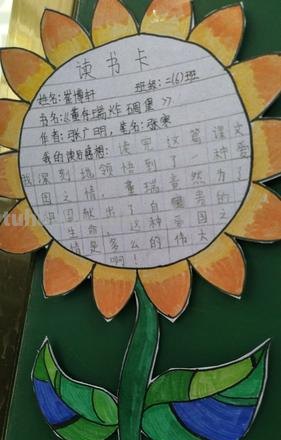 读书卡
姓名:崔博轩 班级:二(6)班
书名:《董存瑞炸碉堡》
作者:张广明,笔名:张寒
我的读后感想:读完这篇课文
我深刻地领悟到了一种爱
国之情,董瑞竟然为了
祖国献出了自己宝贵的
生命,这种爱国之
情是多么的伟大
啊!